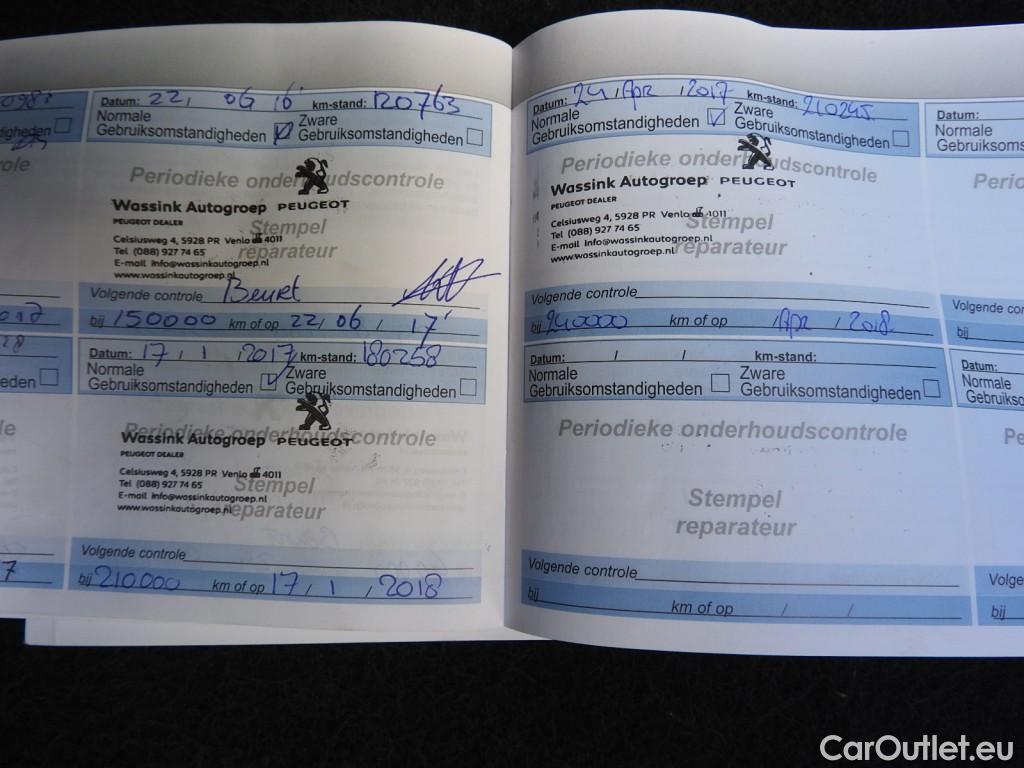 Datum: 22, 06 16 km-stand: 120763
Normale Gebruiksomstandigheden Zware Gebruiksomstandigheden
Periodieke onderhoudscontrole
Wassink Autogroep PEUGEOT
PEUGEOT DEALER
Stempel reparateur
Celsiusweg 4, 5928 PR Venlo 4011
Tel (088) 927 74 65
E-mail info@wassinkautogroep.nl
www.wassinkautogroep.nl
Volgende controle Beurt
bij 150000 km of op 22, 06, 17'
Datum: 17, 1, 2017 km-stand: 180258
Normale Gebruiksomstandigheden Zware Gebruiksomstandigheden
Periodieke onderhoudscontrole
Wassink Autogroep PEUGEOT
PEUGEOT DEALER
Celsiusweg 4, 5928 PR Venlo 4011
Tel (088) 927 74 65
E-mail info@wassinkautogroep.nl
www.wassinkautogroep.nl
Stempel reparateur
Volgende controle
bij 210.000 km of op 17, 1, 2018
Datum: 24, Apr, 2017 km-stand: 210245
Normale Gebruiksomstandigheden Zware Gebruiksomstandigheden
Periodieke onderhoudscontrole
Wassink Autogroep PEUGEOT
PEUGEOT DEALER
Celsiusweg 4, 5928 PR Venlo 4011
Tel (088) 927 74 65
E-mail info@wassinkautogroep.nl
www.wassinkautogroep.nl
Stempel reparateur
Volgende controle
bij 240000 km of op /Apr, 2018
Datum: / / km-stand:
Normale Gebruiksomstandigheden Zware Gebruiksomstandigheden
Periodieke onderhoudscontrole
Stempel
reparateur
Volgende controle
bij km of op / /
Datum:
Normale
Gebruiksoms
Perio
Volgende co
bij
Datum:
Normale
Gebruikso
Pe
Volge
bij
CarOutlet.eu